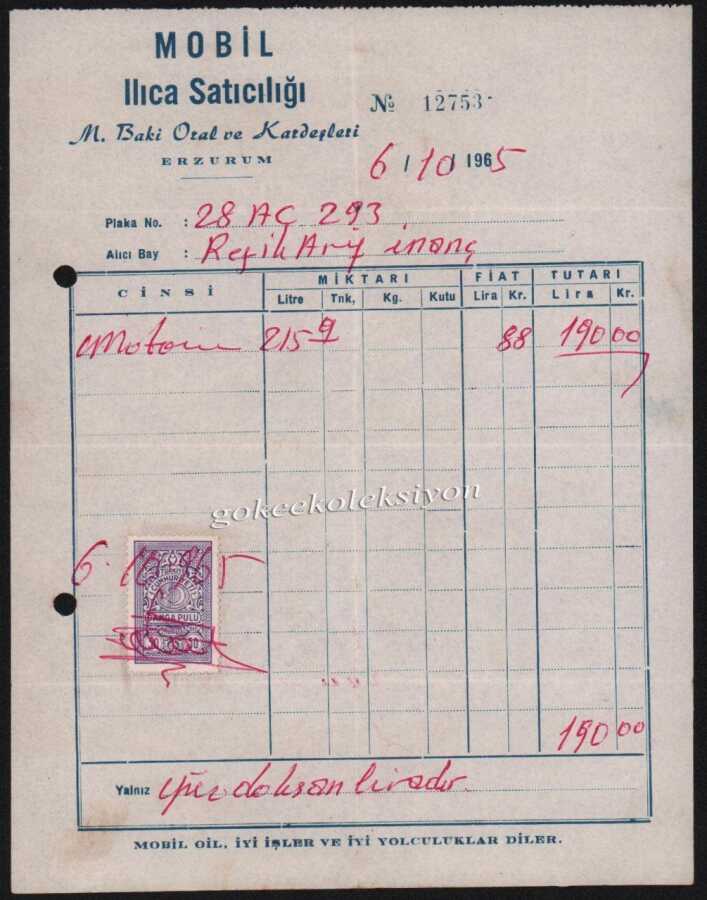 MOBİL
Ilıca Satıcılığı
M. Baki Oral ve Kardeşleri
ERZURUM
№ 12753
6/10/1965
Plaka No. : 28 AC 293
Alıcı Bay : Refik Arif inanç
CİNSİ MİKTARI FİAT TUTARI
Litre Tnk, Kg. Kutu Lira Kr. Lira Kr.
Motorin 215 9 88 190 00
gokcekoleksiyon
6.10.965
TÜRKİYE
CUMHURİYETİ
DAMGA PULU
190 00
Yalnız yüz doksan liradır.
MOBİL OİL, İYİ İŞLER VE İYİ YOLCULUKLAR DİLER.